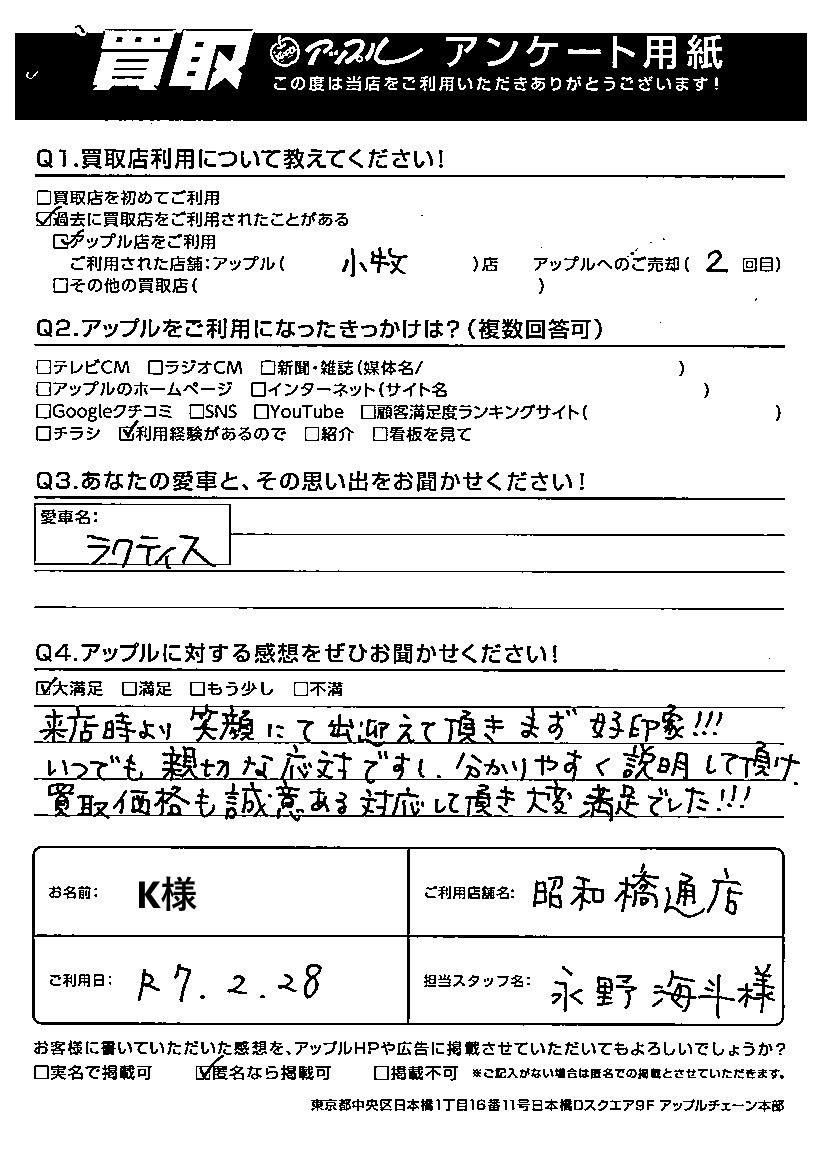 買取 アップル アンケート用紙
この度は当店をご利用いただきありがとうございます!
Q1.買取店利用について教えてください!
□買取店を初めてご利用
☑過去に買取店をご利用されたことがある
☑アップル店をご利用
ご利用された店舗:アップル( 小牧 )店 アップルへのご売却( 2 回目)
□その他の買取店( )
Q2.アップルをご利用になったきっかけは?(複数回答可)
□テレビCM □ラジオCM □新聞・雑誌(媒体名/ )
□アップルのホームページ □インターネット(サイト名 )
□Googleクチコミ □SNS □YouTube □顧客満足度ランキングサイト( )
□チラシ ☑利用経験があるので □紹介 □看板を見て
Q3.あなたの愛車と、その思い出をお聞かせください!
愛車名:
ラクティス
Q4.アップルに対する感想をぜひお聞かせください!
☑大満足 □満足 □もう少し □不満
来店時より笑顔にて出迎えて頂きまず好印象!!!
いつでも親切な応対ですし、分かりやすく説明して頂け
買取価格も誠意ある対応して頂き大変満足でした!!!
お名前: K様 ご利用店舗名: 昭和橋通店
ご利用日: R7.2.28 担当スタッフ名: 永野海斗様
お客様に書いていただいた感想を、アップルHPや広告に掲載させていただいてもよろしいでしょうか?
□実名で掲載可 ☑匿名なら掲載可 □掲載不可 ※ご記入がない場合は匿名での掲載とさせていただきます。
東京都中央区日本橋1丁目16番11号日本橋Dスクエア9F アップルチェーン本部